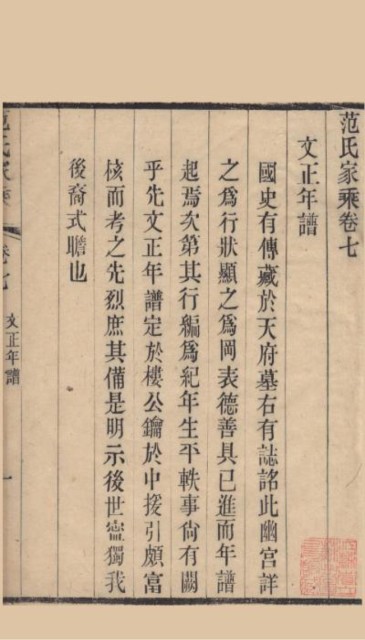 范氏家乘卷七
文正年譜
國史有傳藏於天府墓右有誌詺此幽宫詳
之爲行狀顯之爲岡表德善具已進而年譜
起焉次第其行編爲紀年生平軼事尙有闕
乎先文正年譜定於樓公鑰於中援引頗富
核而考之先烈庶其備是明示後世寍獨我
後裔式瞻也
范氏家乘
卷七
文正年譜
一